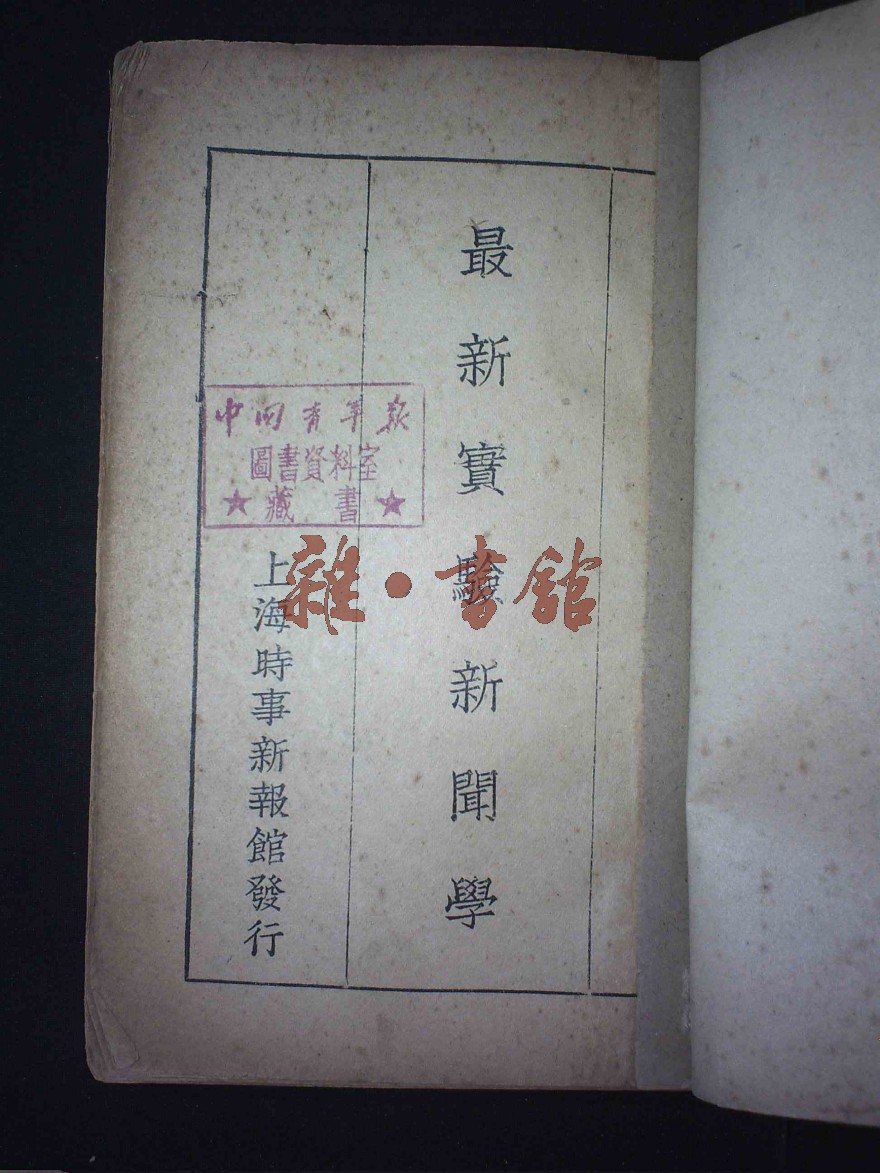 最新實驗新聞學
上海時事新報館發行
中国青年报
圖書資料室
藏書
雜·書館